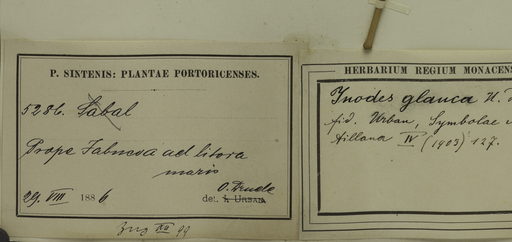 P. SINTENIS: PLANTAE PORTORICENSES.
5286. Sabal
Prope Fabucoa ad litora
maris
29. VIII 1886
O. Drude
det. I. URBAN.
XII 99
HERBARIUM REGIUM MONACENS
Inodes glauca U. D
fid. Urban, Symbolae
Antillana IV (1903) 127.